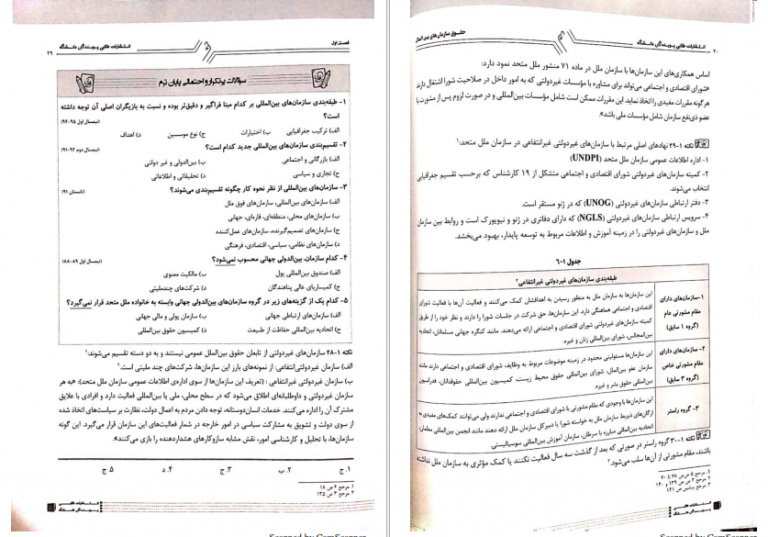 فصل اول
انتشارات طلایی پویندگان دانشگاه
۲۹
سوالات پرتکرار و احتمالی پایان ترم
۱- طبقه‌بندی سازمان‌های بین‌المللی بر کدام مبنا فراگیر و دقیق‌تر بوده و نسبت به بازیگران اصلی آن توجه داشته
است؟
(نیمسال اول ۹۵-۹۴)
الف) ترکیب جغرافیایی
ب) اختیارات
ج) نوع موسسین
د) اهداف
۲- تقسیم‌بندی سازمان‌های بین‌المللی جدید کدام است؟
(نیمسال دوم ۹۲-۹۱)
الف) بازرگانی و اجتماعی
ب) بین‌الدولی و غیر دولتی
ج) تجاری و سیاسی
د) تحقیقاتی و اطلاعاتی
۳- سازمان‌های بین‌المللی از نظر نحوه کار چگونه تقسیم‌بندی می‌شوند؟
(تابستان ۹۱)
الف) سازمان‌های بین‌المللی، سازمان‌های فوق ملل
ب) سازمان‌های محلی، منطقه‌ای، قاره‌ای، جهانی
ج) سازمان‌های تصمیم‌گیرنده، سازمان‌های عمل‌کننده
د) سازمان‌های نظامی، سیاسی، اقتصادی، فرهنگی
۴- کدام سازمان، بین‌الدولی جهانی محسوب نمی‌شود؟
(نیمسال اول ۸۹-۸۸)
الف) صندوق بین‌المللی پول
ب) مالکیت معنوی
ج) کمیساریای عالی پناهندگان
د) شرکت‌های چندملیتی
۵- کدام یک از گزینه‌های زیر در گروه سازمان‌های بین‌الدولی جهانی وابسته به خانواده ملل متحد قرار نمی‌گیرد؟
الف) سازمان‌های ارتباطی جهانی
ب) سازمان پولی و مالی جهانی
ج) اتحادیه بین‌المللی حفاظت از طبیعت
د) کمیسیون حقوق بین‌المللی
نکته ۱-۲۸ سازمان‌های غیردولتی از تابعان حقوق بین‌الملل عمومی نیستند و به دو دسته تقسیم می‌شوند:
الف) سازمان غیردولتی‌انتفاعی: از نمونه‌های بارز این سازمان‌ها، شرکت‌های چند ملیتی است.
ب) سازمان غیردولتی غیرانتفاعی: (تعریف این سازمان‌ها از سوی اداره‌ی اطلاعات عمومی سازمان ملل متحد): «به هر
سازمان غیردولتی و داوطلبانه‌ای اطلاق می‌شود که در سطح محلی، ملی یا بین‌المللی فعالیت دارد و افرادی با علایق
مشترک آن را اداره می‌کنند. خدمات انسان‌دوستانه، توجه دادن مردم به اعمال دولت، نظارت بر سیاست‌های اتخاذ شده
از سوی دولت و تشویق به مشارکت سیاسی در امور خارجه در شمار فعالیت‌های این سازمان قرار می‌گیرد. این گونه
سازمان‌ها، با تحلیل و کارشناسی امور، نقش مشابه سازوکارهای هشداردهنده را بازی می‌کنند».
۱. ج
۲. ب
۳. ج
۴. د
۵. ج
۱. مرجع ۲ ص ۱۸
۲. مرجع ۲ ص ۱۳۵
۳۰
انتشارات طلایی پویندگان دانشگاه
حقوق سازمان‌های بین‌الملل
اساس همکاری‌های این سازمان‌ها با سازمان ملل در ماده ۷۱ منشور ملل متحد نمود دارد:
«شورای اقتصادی و اجتماعی می‌تواند برای مشاوره با مؤسسات غیردولتی که به امور داخل در صلاحیت شورا اشتغال دارند
هرگونه مقررات مفیدی را اتخاذ نماید. این مقررات ممکن است شامل مؤسسات بین‌المللی و در صورت لزوم پس از مشورت با
عضو ذی‌نفع سازمان شامل مؤسسات ملی باشد».
نکته ۱-۲۹ نهادهای اصلی مرتبط با سازمان‌های غیردولتی غیرانتفاعی در سازمان ملل متحد:
۱- اداره اطلاعات عمومی سازمان ملل متحد (UNDPI)
۲- کمیته سازمان‌های غیردولتی شورای اقتصادی و اجتماعی متشکل از ۱۹ کارشناس که برحسب تقسیم جغرافیایی
انتخاب می‌شوند.
۳- دفتر ارتباطی سازمان‌های غیردولتی (UNOG) که در ژنو مستقر است.
۴- سرویس ارتباطی سازمان‌های غیردولتی (NGLS) که دارای دفاتری در ژنو و نیویورک است و روابط بین سازمان
ملل و سازمان‌های غیردولتی را در زمینه آموزش و اطلاعات مربوط به توسعه پایدار، بهبود می‌بخشد.
جدول ۱-۶
طبقه‌بندی سازمان‌های غیردولتی غیرانتفاعی
۱-سازمان‌های دارای
مقام مشورتی عام
(گروه ۱ سابق)
این سازمان‌ها به سازمان ملل به منظور رسیدن به اهدافشان کمک می‌کنند و فعالیت آن‌ها با فعالیت شورای
اقتصادی و اجتماعی هماهنگی دارد. این سازمان‌ها، حق شرکت در جلسات شورا را دارند و نظر خود را از طرق
کمیته سازمان‌های غیردولتی شورای اقتصادی و اجتماعی ارائه می‌دهند. مانند کنگره جهانی مسلمانان، اتحادیه
بین‌المجالس، شورای بین‌المللی زنان و غیره.
۲- سازمان‌های دارای
مقام مشورتی خاص
(گروه ۲ سابق)
این سازمان‌ها مسئولیتی محدود در زمینه موضوعات مربوط به وظایف شورای اقتصادی و اجتماعی دارند مانند
سازمان عفو بین‌الملل، شورای بین‌المللی حقوق محیط زیست، کمیسیون بین‌المللی حقوقدانان، فدراسیون
بین‌المللی حقوق بشر و غیره.
۳- گروه راستر
این سازمان‌ها با وجودی که مقام مشورتی با شورای اقتصادی و اجتماعی ندارند ولی می‌توانند کمک‌های مفیدی به
ارگان‌های ذیربط سازمان ملل به خواسته شورا یا دبیرکل سازمان ملل ارائه دهند مانند انجمن بین‌المللی معلمان،
اتحادیه بین‌المللی مبارزه با سرطان، سازمان آموزش بین‌المللی سوسیالیستی.
نکته ۱-۳۰ گروه راستر در صورتی که بعد از گذشت سه سال فعالیت نکنند یا کمک مؤثری به سازمان ملل نداشته
باشند، مقام مشورتی از آن‌ها سلب می‌شود.
Scanned by CamScanner
Scanned by CamScanner